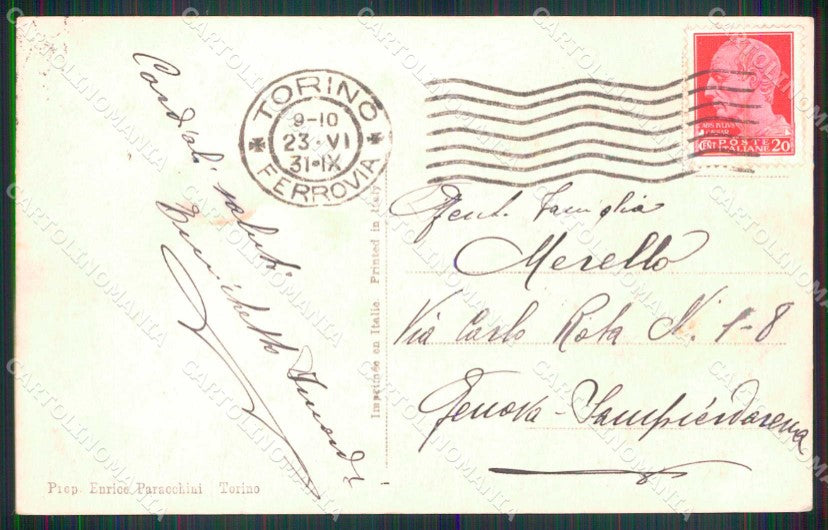 Cordiali saluti
TORINO
9-10
23·VI
31·IX
FERROVIA
POSTE
ITALIANE
CENT 20
Gent. Famiglia
Merello
Via Carlo Rota N. 1-8
Genova-Sampierdarena
Imprimée en Italie Printed in Italy
Prop. Enrico Paracchini Torino
CARTOLINOMANIA